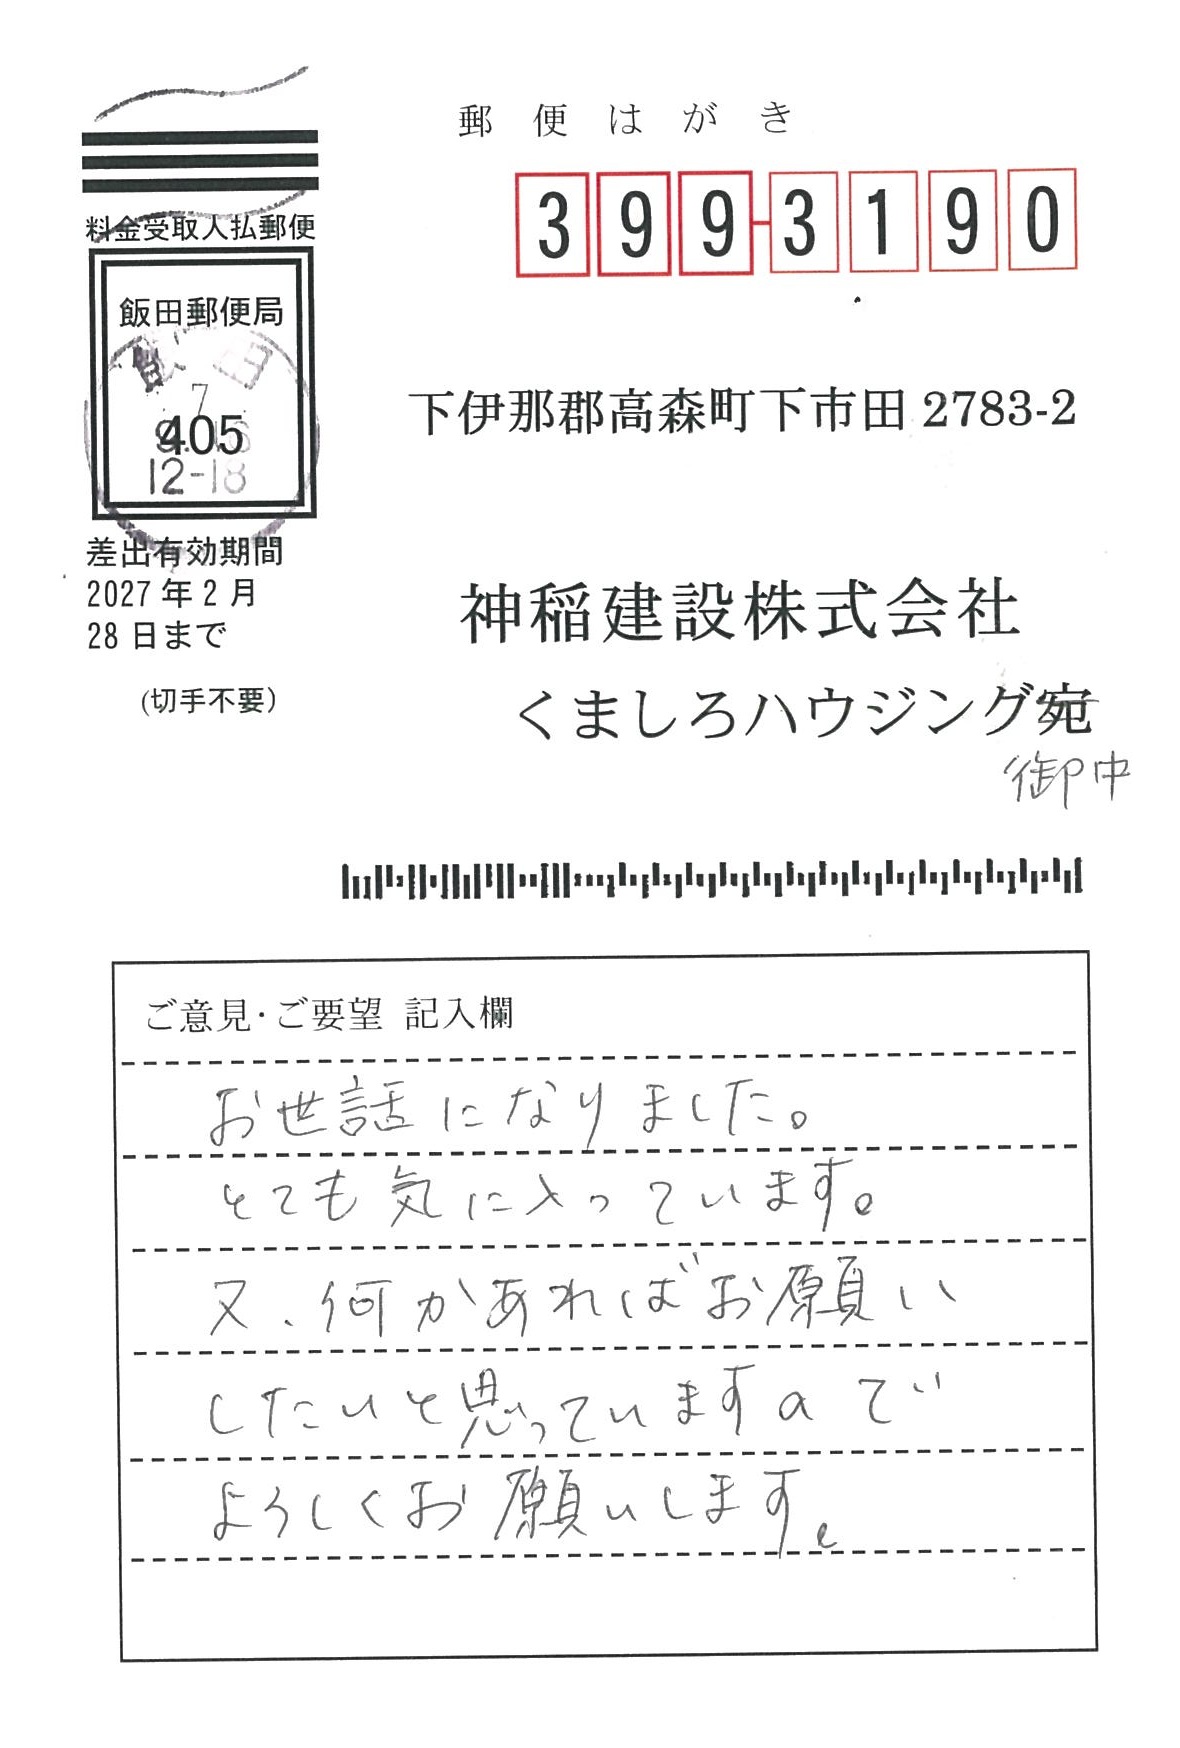 郵便はがき
399-3190
料金受取人払郵便
飯田郵便局
飯田
7
405
12-18
差出有効期間
2027年2月
28日まで
(切手不要)
下伊那郡高森町下市田2783-2
神稲建設株式会社
くましろハウジング宛
御中
ご意見・ご要望 記入欄
お世話になりました。
とても気に入っています。
又、何かあればお願い
したいと思っていますので
よろしくお願いします。